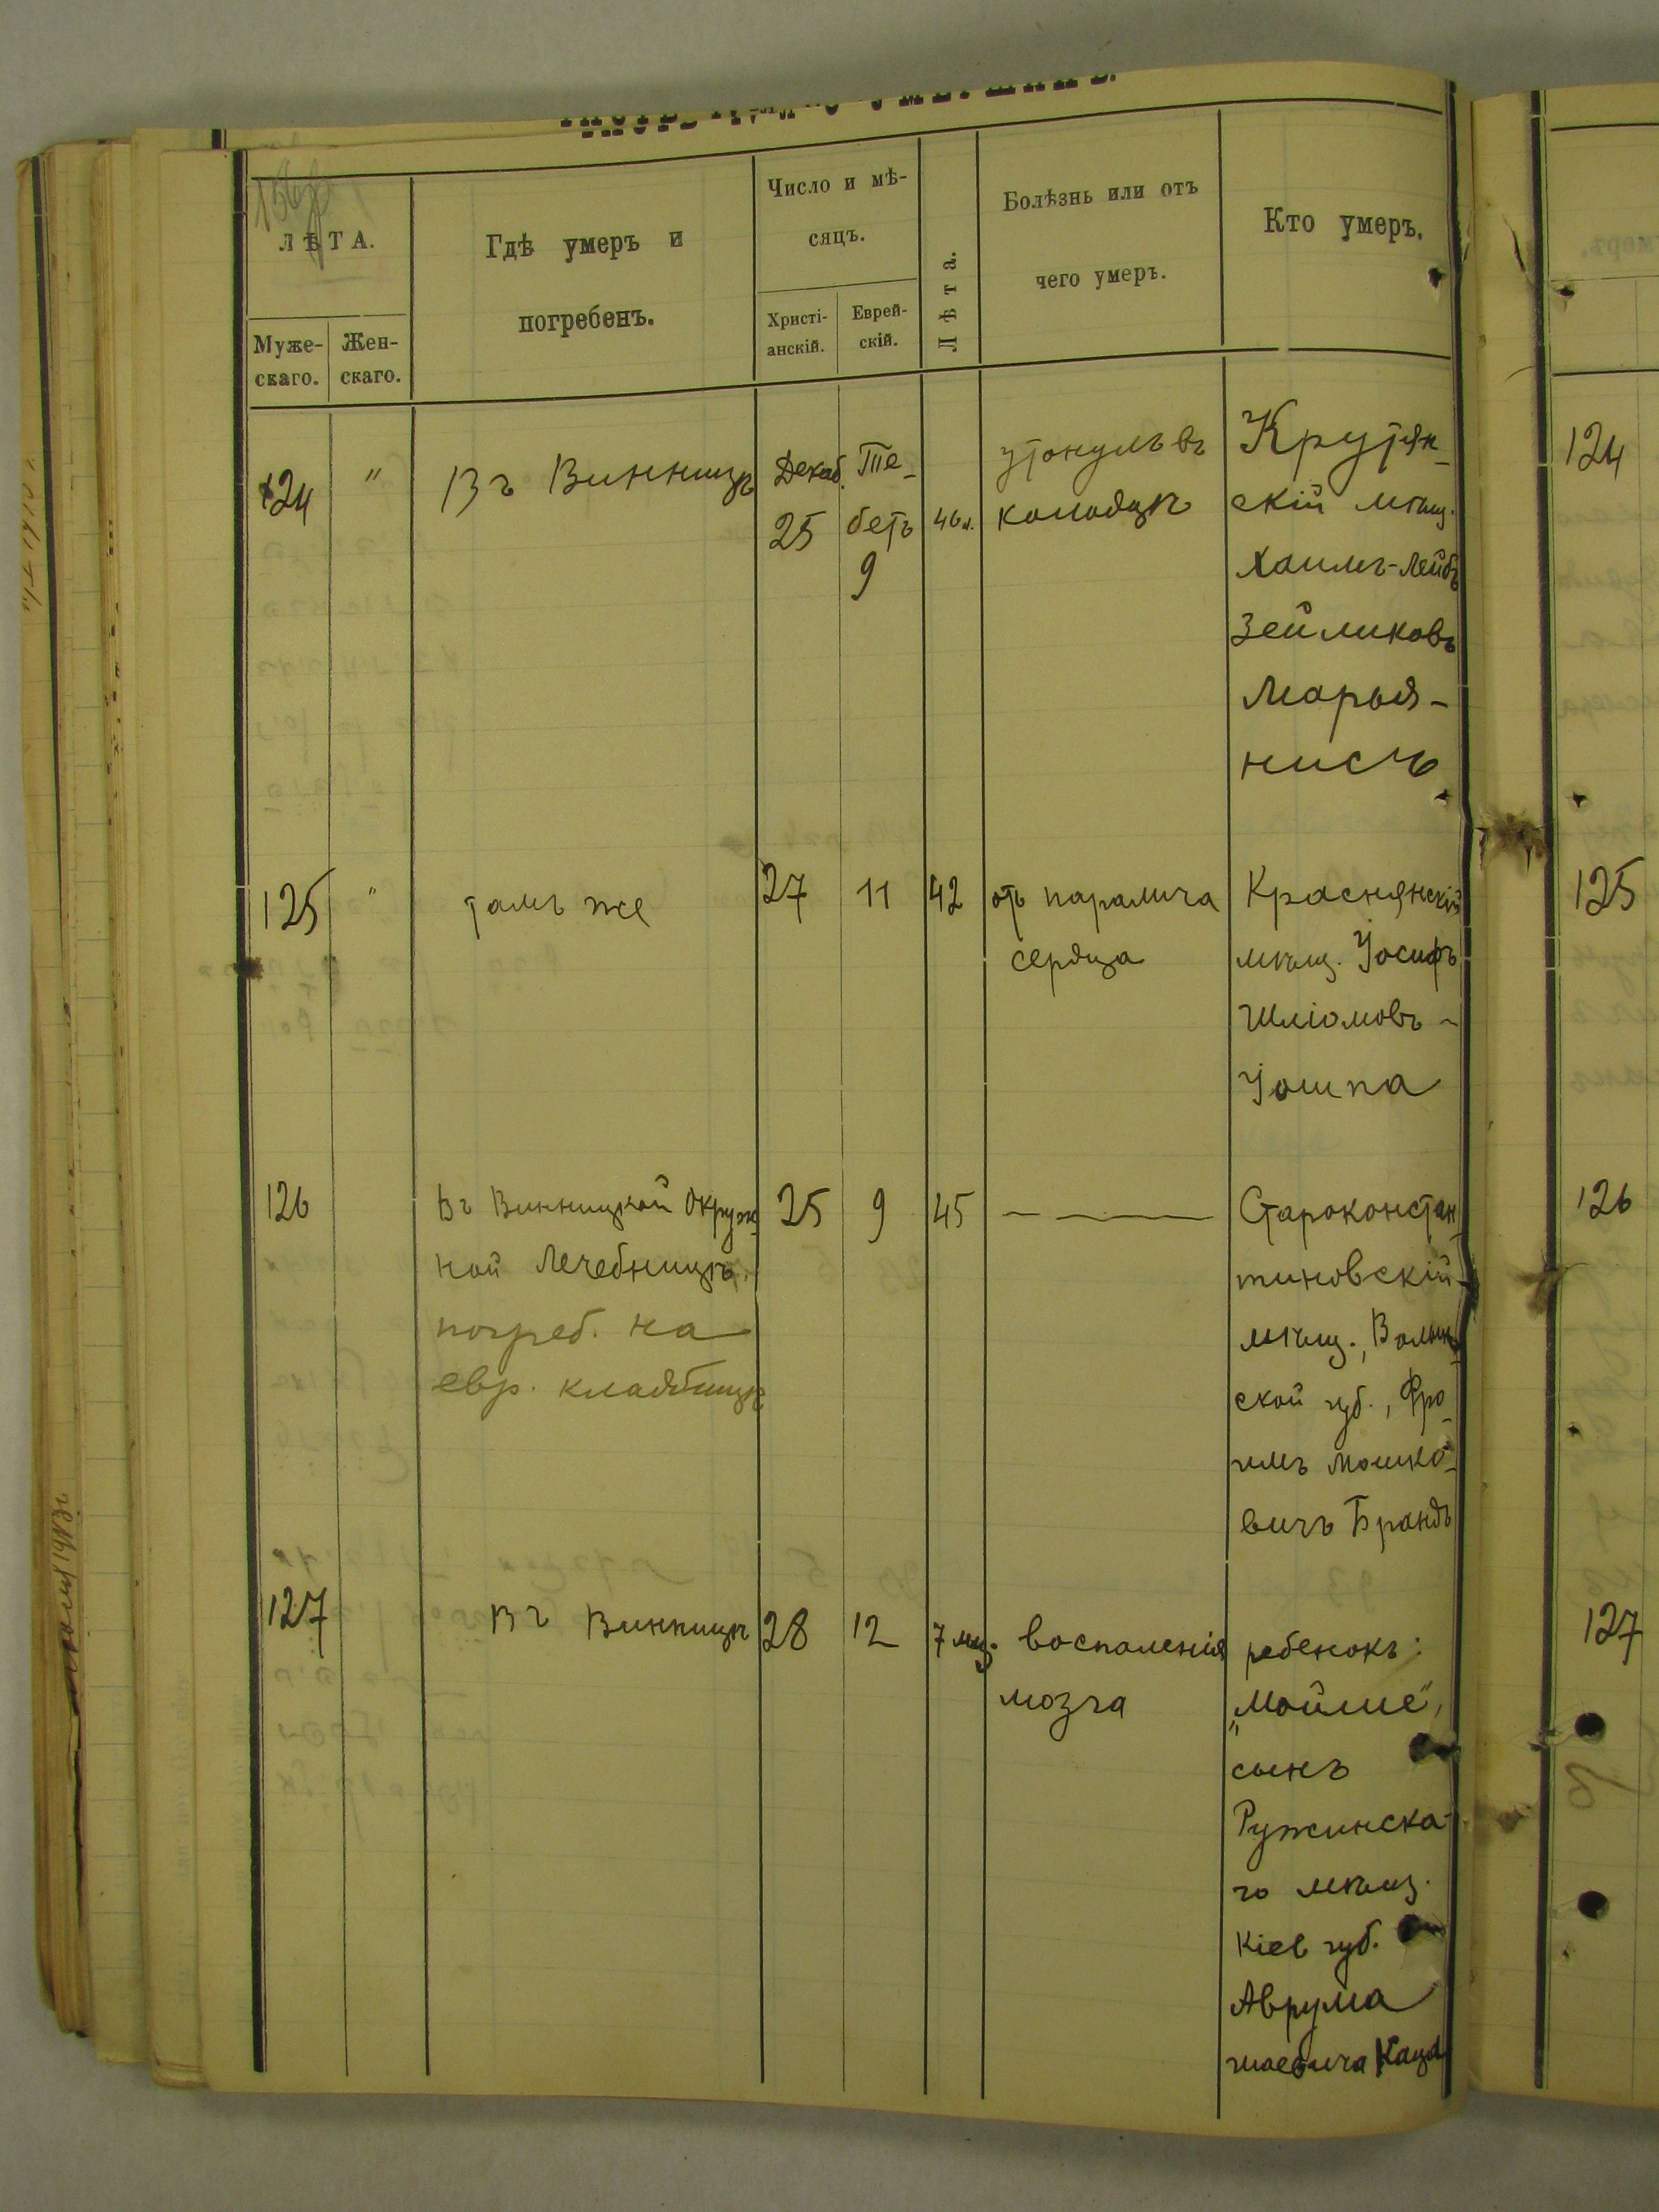 ЛѢТА.
Муже-
скаго.
Жен-
скаго.
Гдѣ умеръ и
погребенъ.
Число и мѣ-
сяцъ.
Христі-
анскій.
Еврей-
скій.
Лѣта.
Болѣзнь или отъ
чего умеръ.
Кто умеръ.
124
"
Въ Винницѣ
Декаб.
25
Те-
бетъ
9
46 л.
утонулъ въ
колодцѣ
Крутян-
скій мѣщ.
Хаимъ-Лейбъ
Зейликовъ
Марья-
нисъ
124
125
"
тамъ же
27
11
42
отъ паралича
сердца
Краснянскій
мѣщ. Іосифъ
Шліомовъ -
Іошпа
125
126
Въ Винницкой Окруж-
ной Лечебницѣ.
погреб. на
евр. кладбищѣ
25
9
45
— ———
Староконстан-
тиновскій
мѣщ., Волын-
ской губ., Фро-
имъ Мошко-
вичъ Брандъ
126
127
Въ Винницѣ
28
12
7 мц.
воспаленія
мозга
ребенокъ:
„Мойше",
сынъ
Ружинска-
го мѣщ.
Кіев губ.
Аврума
Шаевича Каца
127